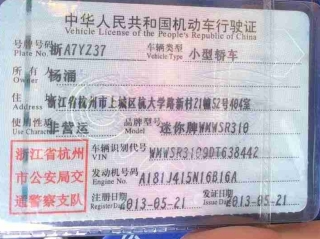 中华人民共和国机动车行驶证
Vehicle License of the People's Republic of China
号牌号码 浙A7YZ37 车辆类型 小型轿车
Plate No. Vehicle Type
所有人 杨涌
Owner
住址 浙江省杭州市上城区杭大学路新村21幢52号404室
Address
使用性质 非营运 品牌型号 迷你牌WMWSR310
Use Character Model
浙江省杭州
市公安局交
通警察支队
车辆识别代号 WMWSR3109DT638442
VIN
发动机号码 A181J415N16B16A
Engine No.
注册日期 2013-05-21 发证日期 2013-05-21
Register Date Issue Date